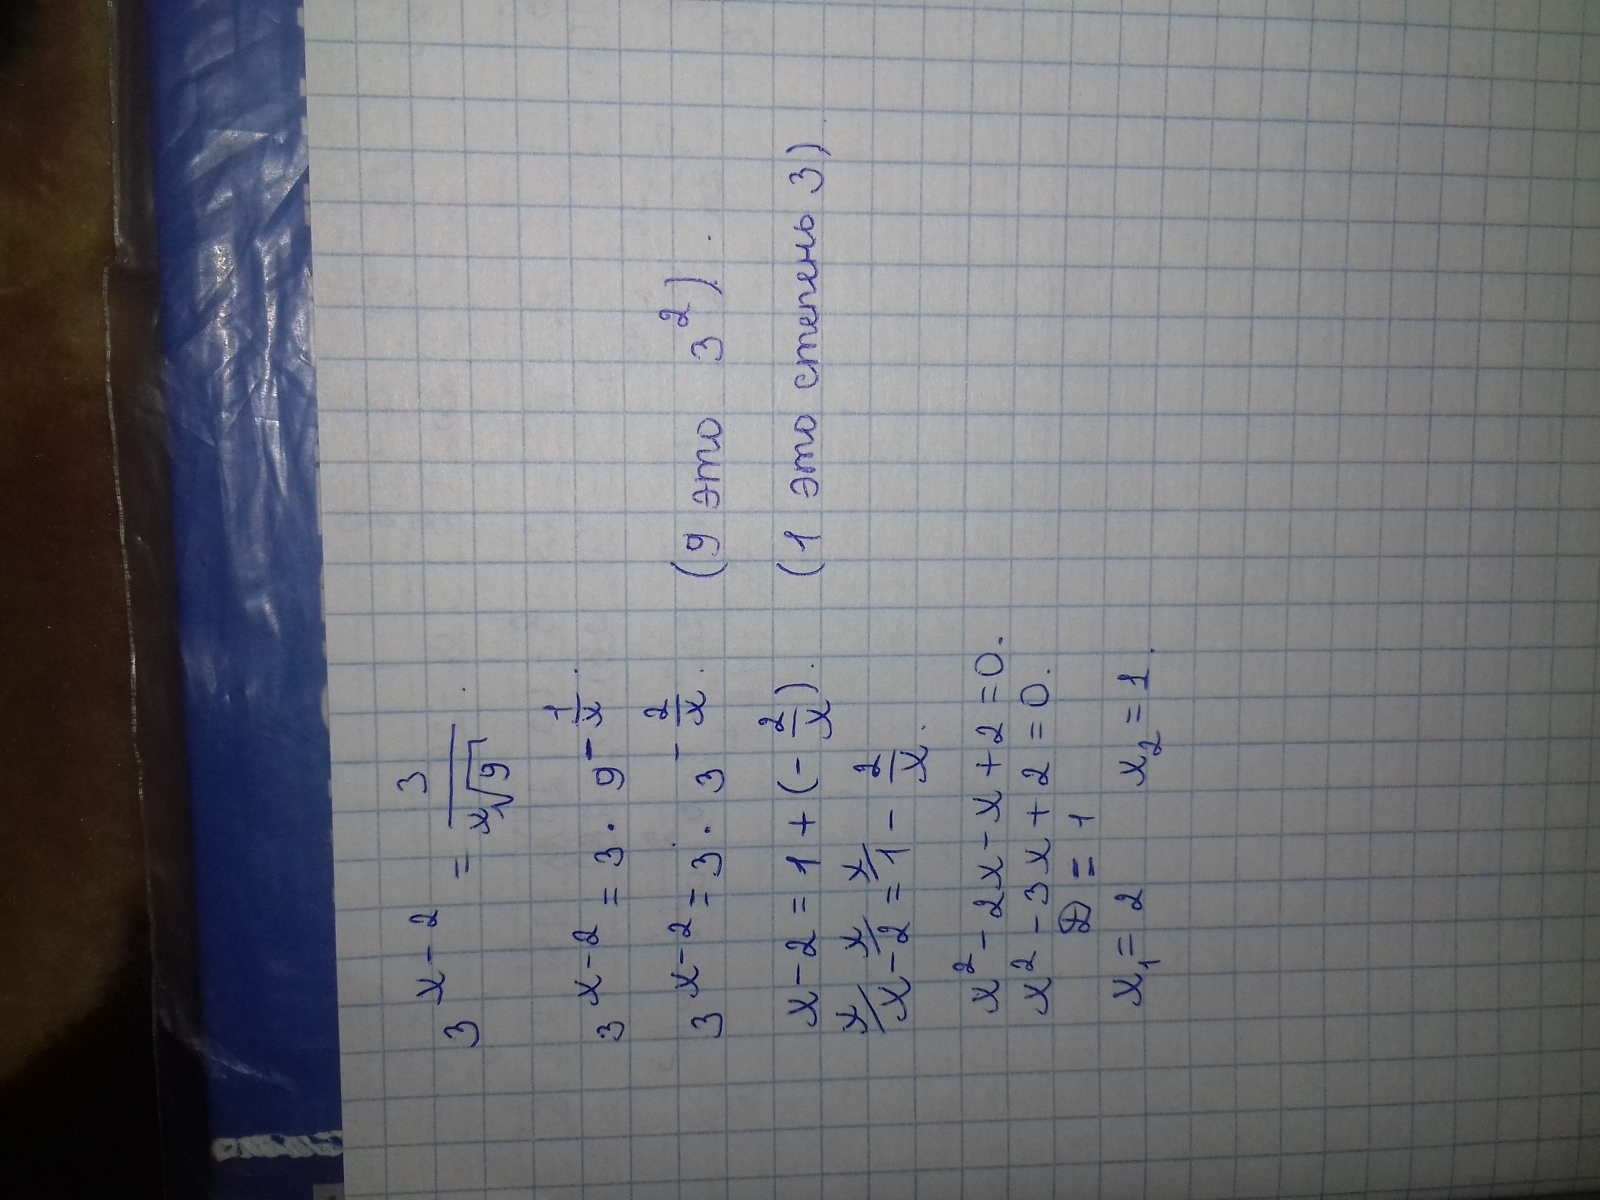 3^(x-2) = 3/ˣ√9.
3^(x-2) = 3·9^(-1/x).
3^(x-2) = 3·3^(-2/x). (9 это 3²).
x-2 = 1+(-2/x). (1 это степень 3)
x/ x/ x/
x-2 = 1 - 2/x.
x²-2x-x+2=0.
x²-3x+2=0.
D = 1
x₁=2 x₂=1.